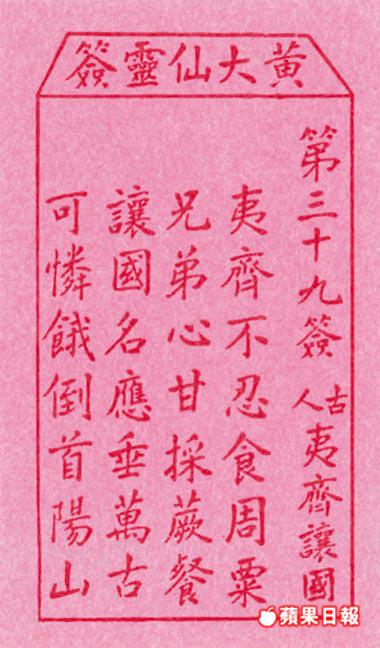 黃大仙靈簽
第三十九簽 古人 夷齊讓國
夷齊不忍食周粟
兄弟心甘採蕨餐
讓國名應垂萬古
可憐餓倒首陽山
蘋果日報